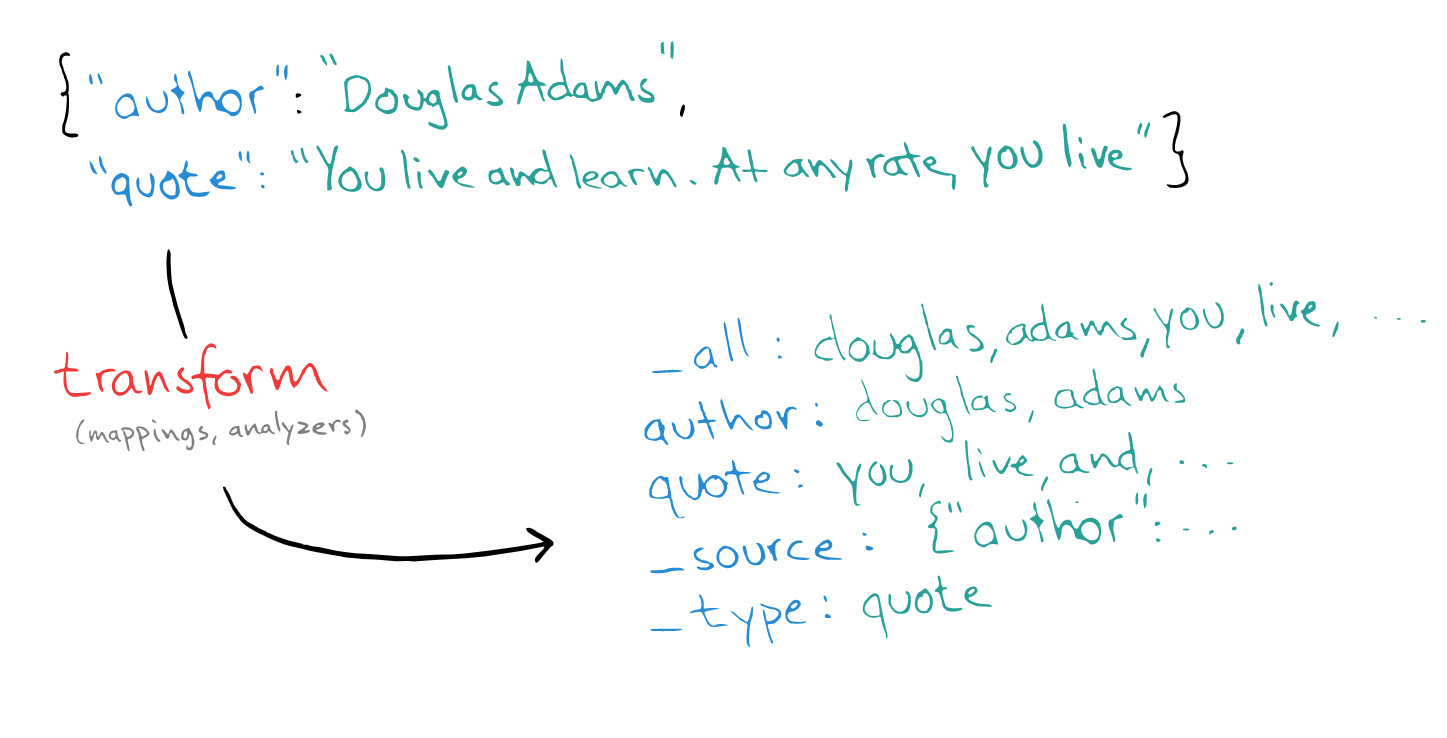 {"author": "Douglas Adams",
"quote": "You live and learn. At any rate, you live"}
transform
(mappings, analyzers)
_all: douglas, adams, you, live, ...
author: douglas, adams
quote: you, live, and, ...
_source: {"author": ...
_type: quote